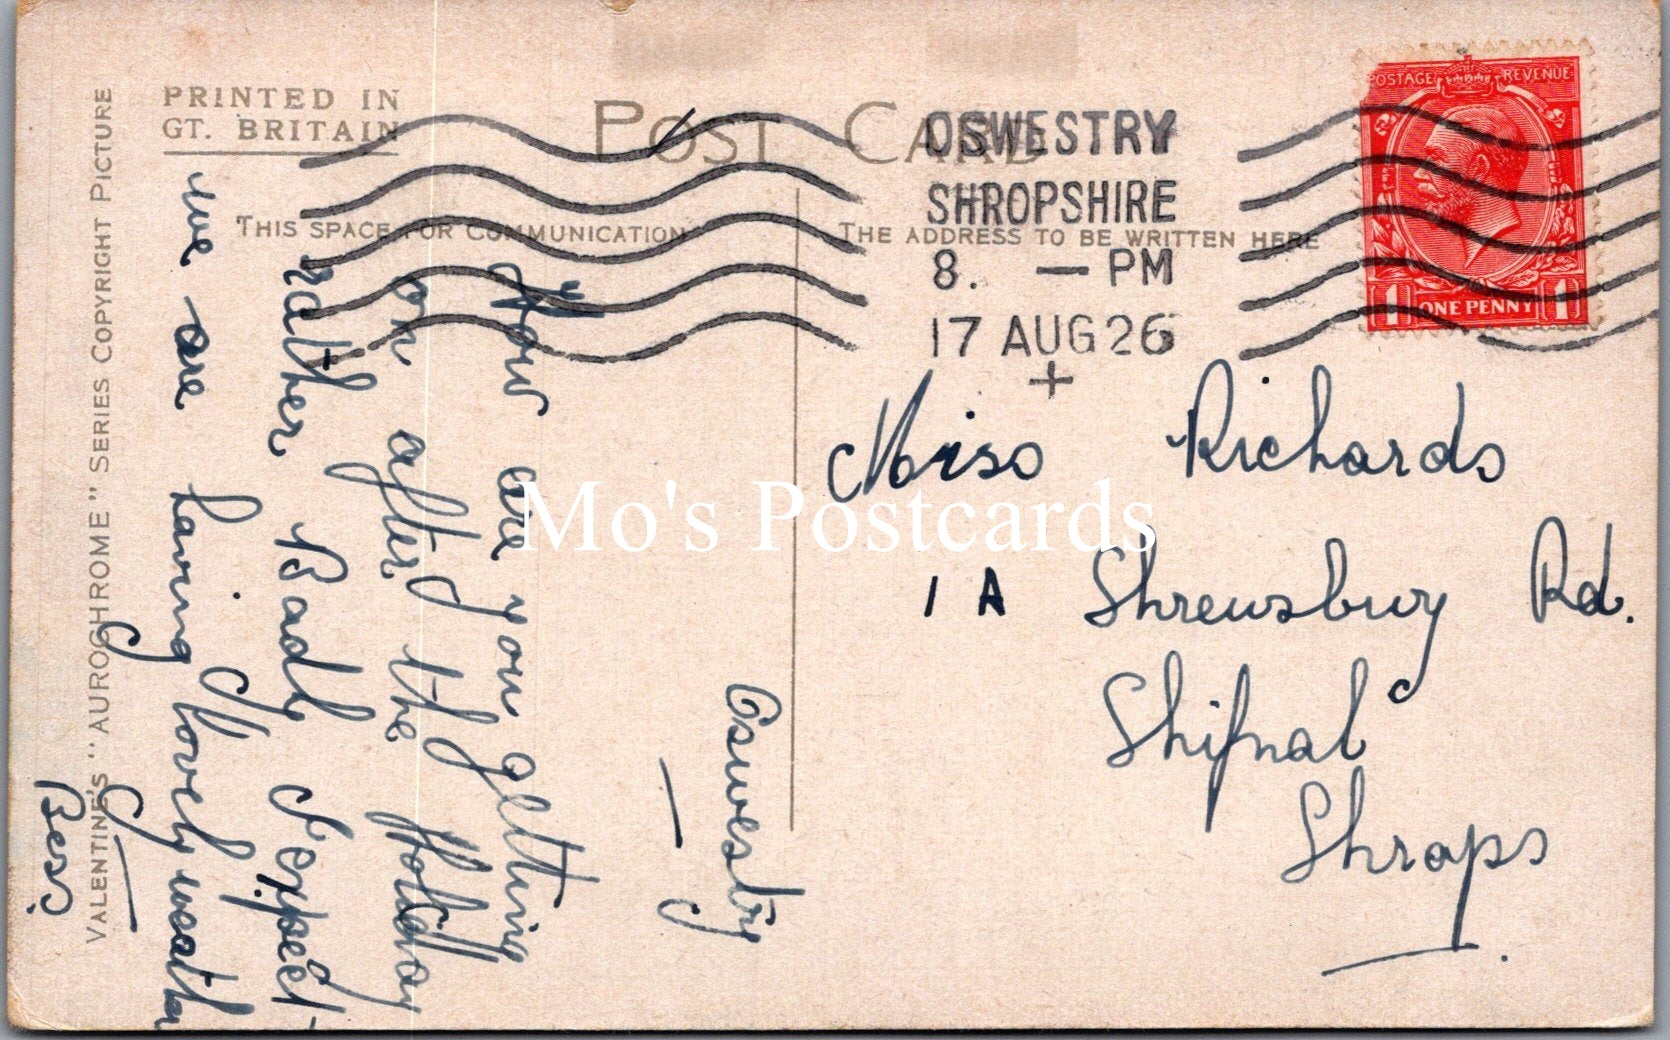 PRINTED IN
GT. BRITAIN
POST CARD
THIS SPACE FOR COMMUNICATION
THE ADDRESS TO BE WRITTEN HERE
VALENTINE'S "AUROCHROME" SERIES COPYRIGHT PICTURE
OSWESTRY
SHROPSHIRE
8. — PM
17 AUG 26
+
POSTAGE REVENUE
1 ONE PENNY 1
Oswestry
How are you getting
on after the Holiday
rather Badly I expect
we are having lovely weather
Bess
Miss Richards
1A Shrewsbury Rd.
Shifnal
Shrops
Mo's Postcards